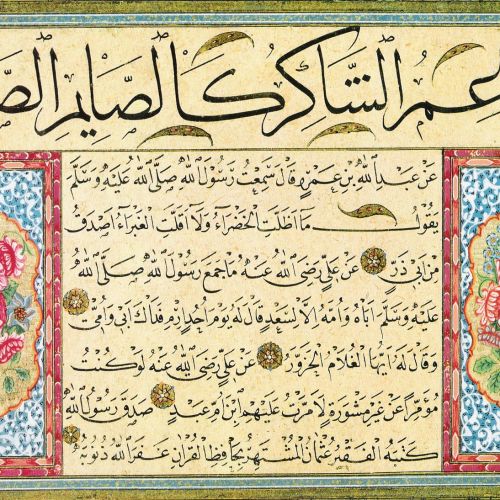 عم الشاكر كالصايم الصا
عَنْ عَبْدِ اللّٰهِ بْنِ عَمْرٍو قَالَ سَمِعْتُ رَسُولَ اللّٰهِ صَلَّى اللّٰهُ عَلَيْهِ وَسَلَّمَ
يَقُولُ مَا أَظَلَّتِ الْخَضْرَاءُ وَلَا أَقَلَّتِ الْغَبْرَاءُ أَصْدَقَ
مِنْ أَبِي ذَرٍّ عَنْ عَلِيٍّ رَضِيَ اللّٰهُ عَنْهُ مَا جَمَعَ رَسُولُ اللّٰهِ صَلَّى اللّٰهُ
عَلَيْهِ وَسَلَّمَ أَبَاهُ وَأُمَّهُ إِلَّا لِسَعْدٍ قَالَ لَهُ يَوْمَ أُحُدٍ ارْمِ فِدَاكَ أَبِي وَأُمِّي
وَقَالَ لَهُ أَيُّهَا الْغُلَامُ الْحَزَوَّرُ عَنْ عَلِيٍّ رَضِيَ اللّٰهُ عَنْهُ لَوْ كُنْتُ
مُؤَمِّرًا عَنْ غَيْرِ مَشُورَةٍ لَأَمَّرْتُ عَلَيْهِمْ ابْنَ أُمِّ عَبْدٍ صَدَقَ رَسُولُ اللّٰهِ
كَتَبَهُ الْفَقِيرُ عُثْمَانُ الْمُشْتَهِرُ بِحَافِظِ الْقُرْآنِ غَفَرَ اللّٰهُ ذُنُوبَهُ